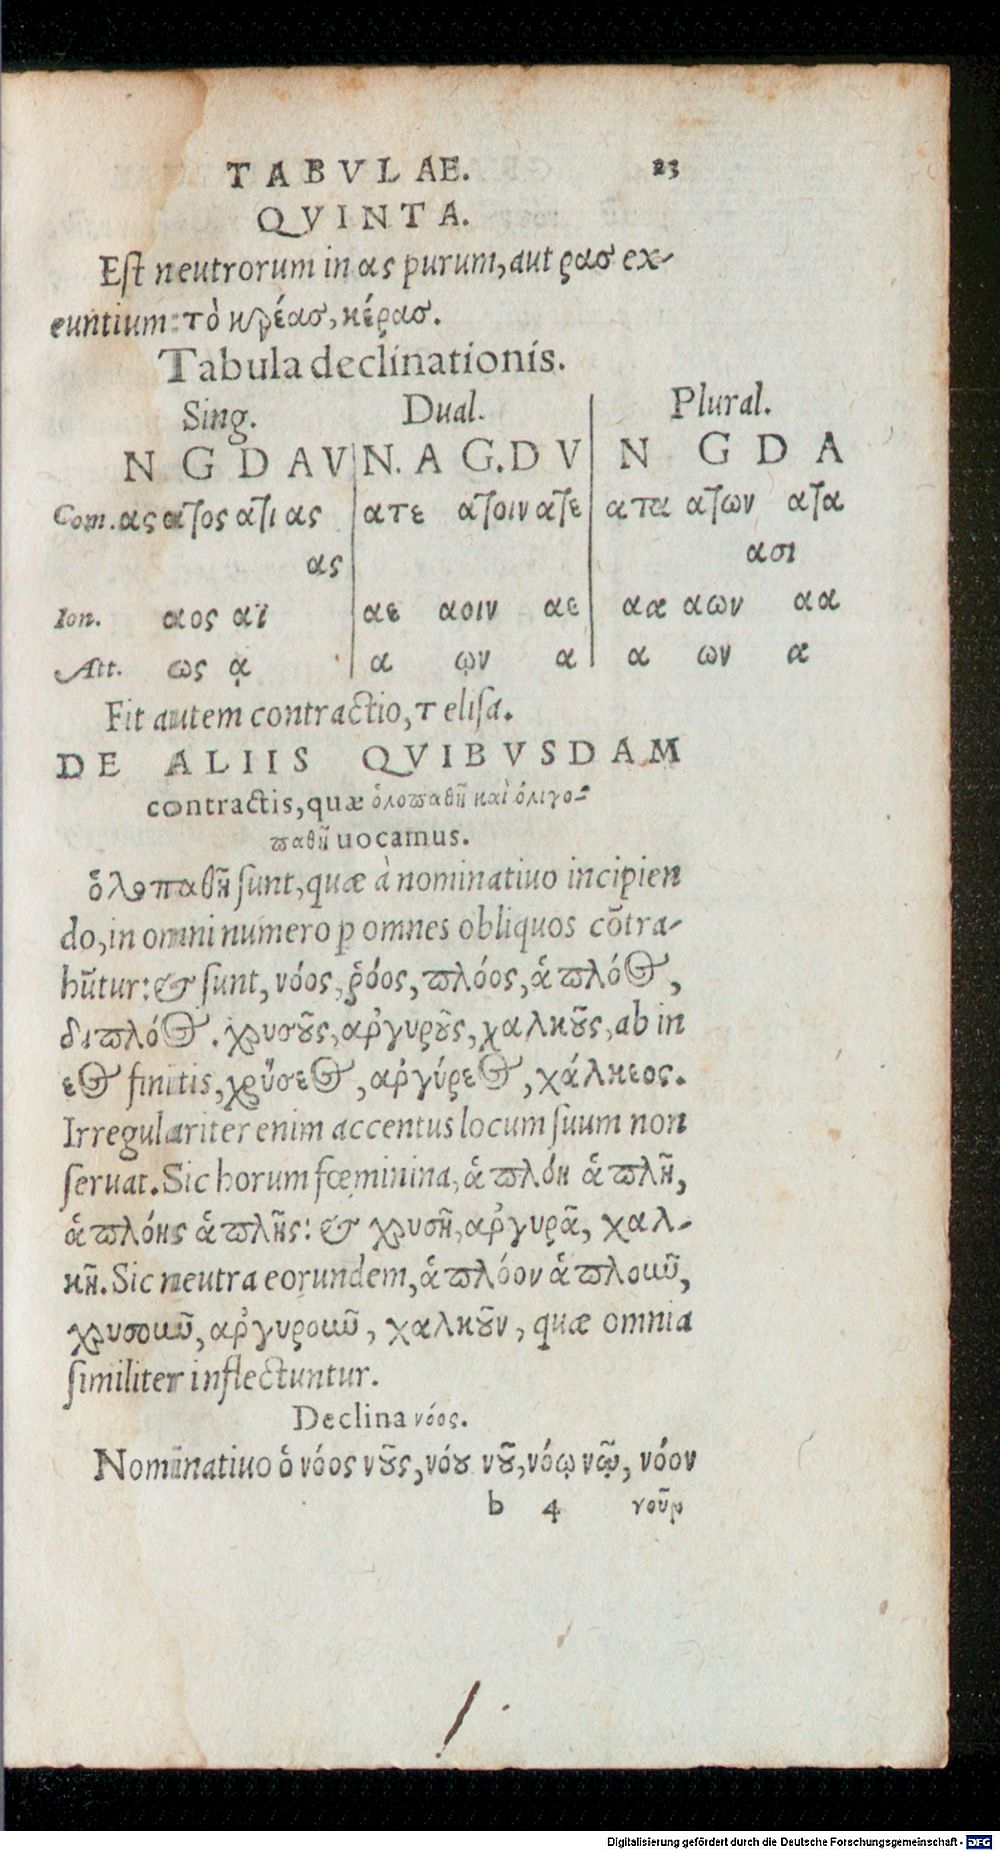 TABVLAE. 23
QVINTA.
Est neutrorum in ας purum, aut ρασ ex-
euntium: τὸ κρέασ, κέρασ.
Tabula declinationis.
Sing. Dual. Plural.
N G D A V N. A G. D V N G D A
Com. ας ατος ατι ας ατε ατοιν ατε ατα ατων ατα
ας ασι
Ion. αος αϊ αε αοιν αε αα αων αα
Att. ως ᾳ α ῳν α α ων α
Fit autem contractio, τ elisa.
DE ALIIS QVIBVSDAM
contractis, quæ ὁλοπαθῆ καὶ ὀλιγο-
παθῆ uocamus.
ὅλοπαθῆ sunt, quæ à nominatiuo incipien
do, in omni numero p omnes obliquos cõtra-
hũtur: & sunt, νόος, ῥόος, πλόος, ἁπλόος,
διπλόος. χρυσοῦς, αργυροῦς, χαλκοῦς, ab in
εος finitis, χρύσεος, αργύρεος, χάλκεος.
Irregulariter enim accentus locum suum non
seruat. Sic horum fœminina, ἁπλόη ἁπλῆ,
ἁπλόης ἁπλῆς: & χρυσῆ, αργυρᾶ, χαλ-
κῆ. Sic neutra eorundem, ἁπλόον ἁπλοῦν,
χρυσοῦν, αργυροῦν, χαλκοῦν, quæ omnia
similiter inflectuntur.
Declina νόος.
Nominatiuo ὁ νόος νοῦς, νόου νοῦ, νόῳ νῷ, νόον
b 4 νοῦν
Digitalisierung gefördert durch die Deutsche Forschungsgemeinschaft - DFG